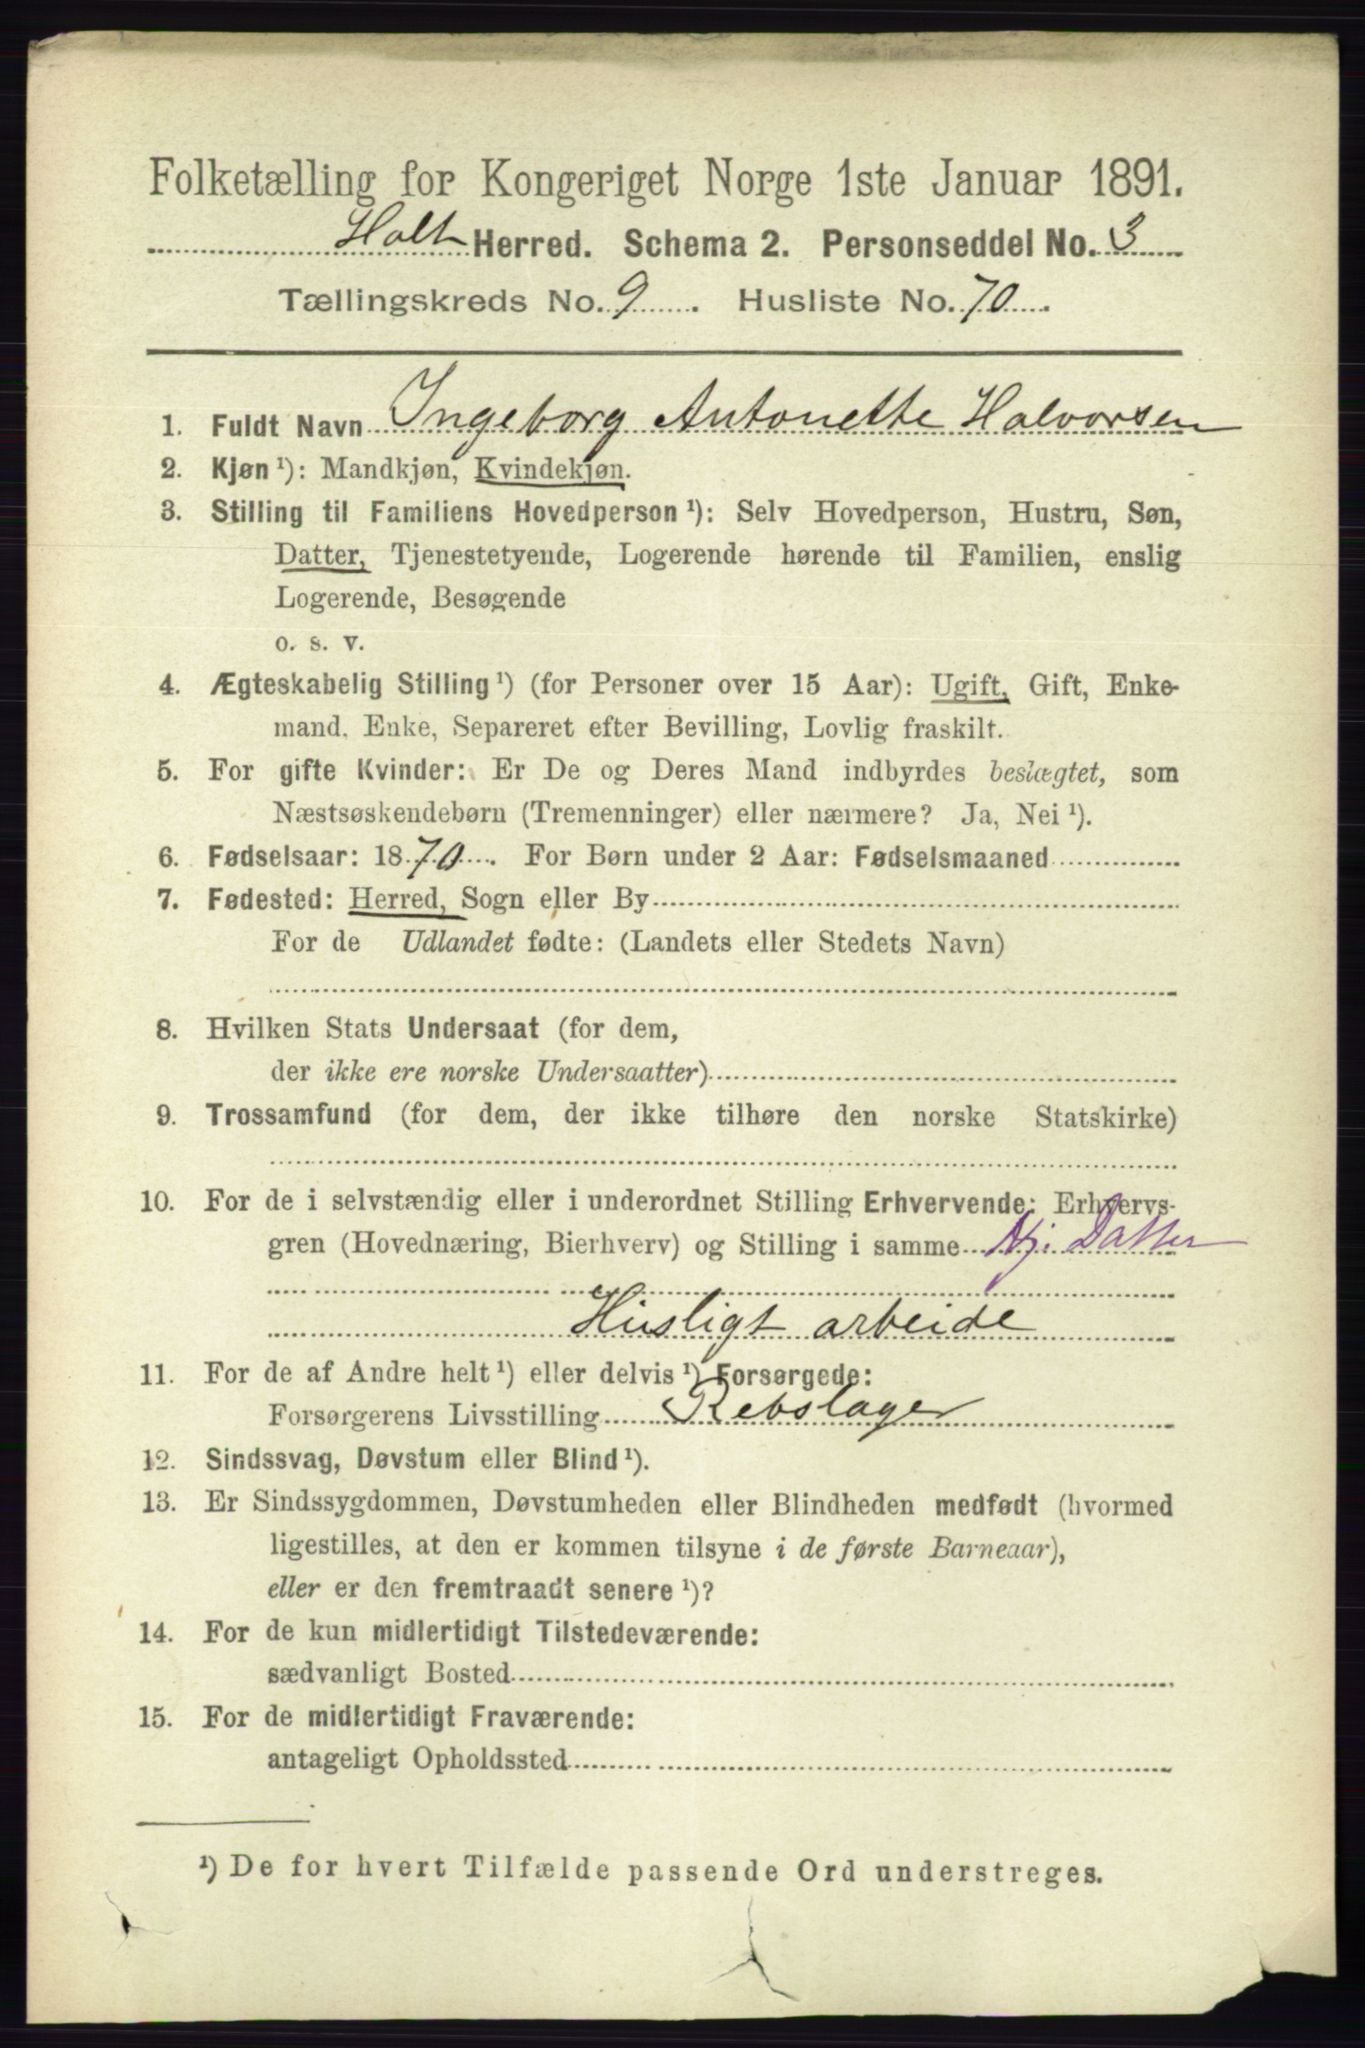 Folketælling for Kongeriget Norge 1ste Januar 1891.
Holt Herred. Schema 2. Personseddel No. 3
Tællingskreds No. 9. Husliste No. 70.
1. Fuldt Navn Ingeborg Antonette Halvorsen
2. Kjøn ¹): Mandkjøn, Kvindekjøn.
3. Stilling til Familiens Hovedperson ¹): Selv Hovedperson, Hustru, Søn,
Datter, Tjenestetyende, Logerende hørende til Familien, enslig
Logerende, Besøgende
o. s. v.
4. Ægteskabelig Stilling ¹) (for Personer over 15 Aar): Ugift, Gift, Enke-
mand, Enke, Separeret efter Bevilling, Lovlig fraskilt.
5. For gifte Kvinder: Er De og Deres Mand indbyrdes beslægtet, som
Næstsøskendebørn (Tremenninger) eller nærmere? Ja, Nei ¹).
6. Fødselsaar: 1870. For Børn under 2 Aar: Fødselsmaaned
7. Fødested: Herred, Sogn eller By
For de Udlandet fødte: (Landets eller Stedets Navn)
8. Hvilken Stats Undersaat (for dem,
der ikke ere norske Undersaatter)
9. Trossamfund (for dem, der ikke tilhøre den norske Statskirke)
10. For de i selvstændig eller i underordnet Stilling Erhvervende: Erhvervs-
gren (Hovednæring, Bierhverv) og Stilling i samme Hj. Datter
Husligt arbeide
11. For de af Andre helt ¹) eller delvis ¹) Forsørgede:
Forsørgerens Livsstilling Rebslager
12. Sindssvag, Døvstum eller Blind ¹).
13. Er Sindssygdommen, Døvstumheden eller Blindheden medfødt (hvormed
ligestilles, at den er kommen tilsyne i de første Barneaar),
eller er den fremtraadt senere ¹)?
14. For de kun midlertidigt Tilstedeværende:
sædvanligt Bosted
15. For de midlertidigt Fraværende:
antageligt Opholdssted
¹) De for hvert Tilfælde passende Ord understreges.